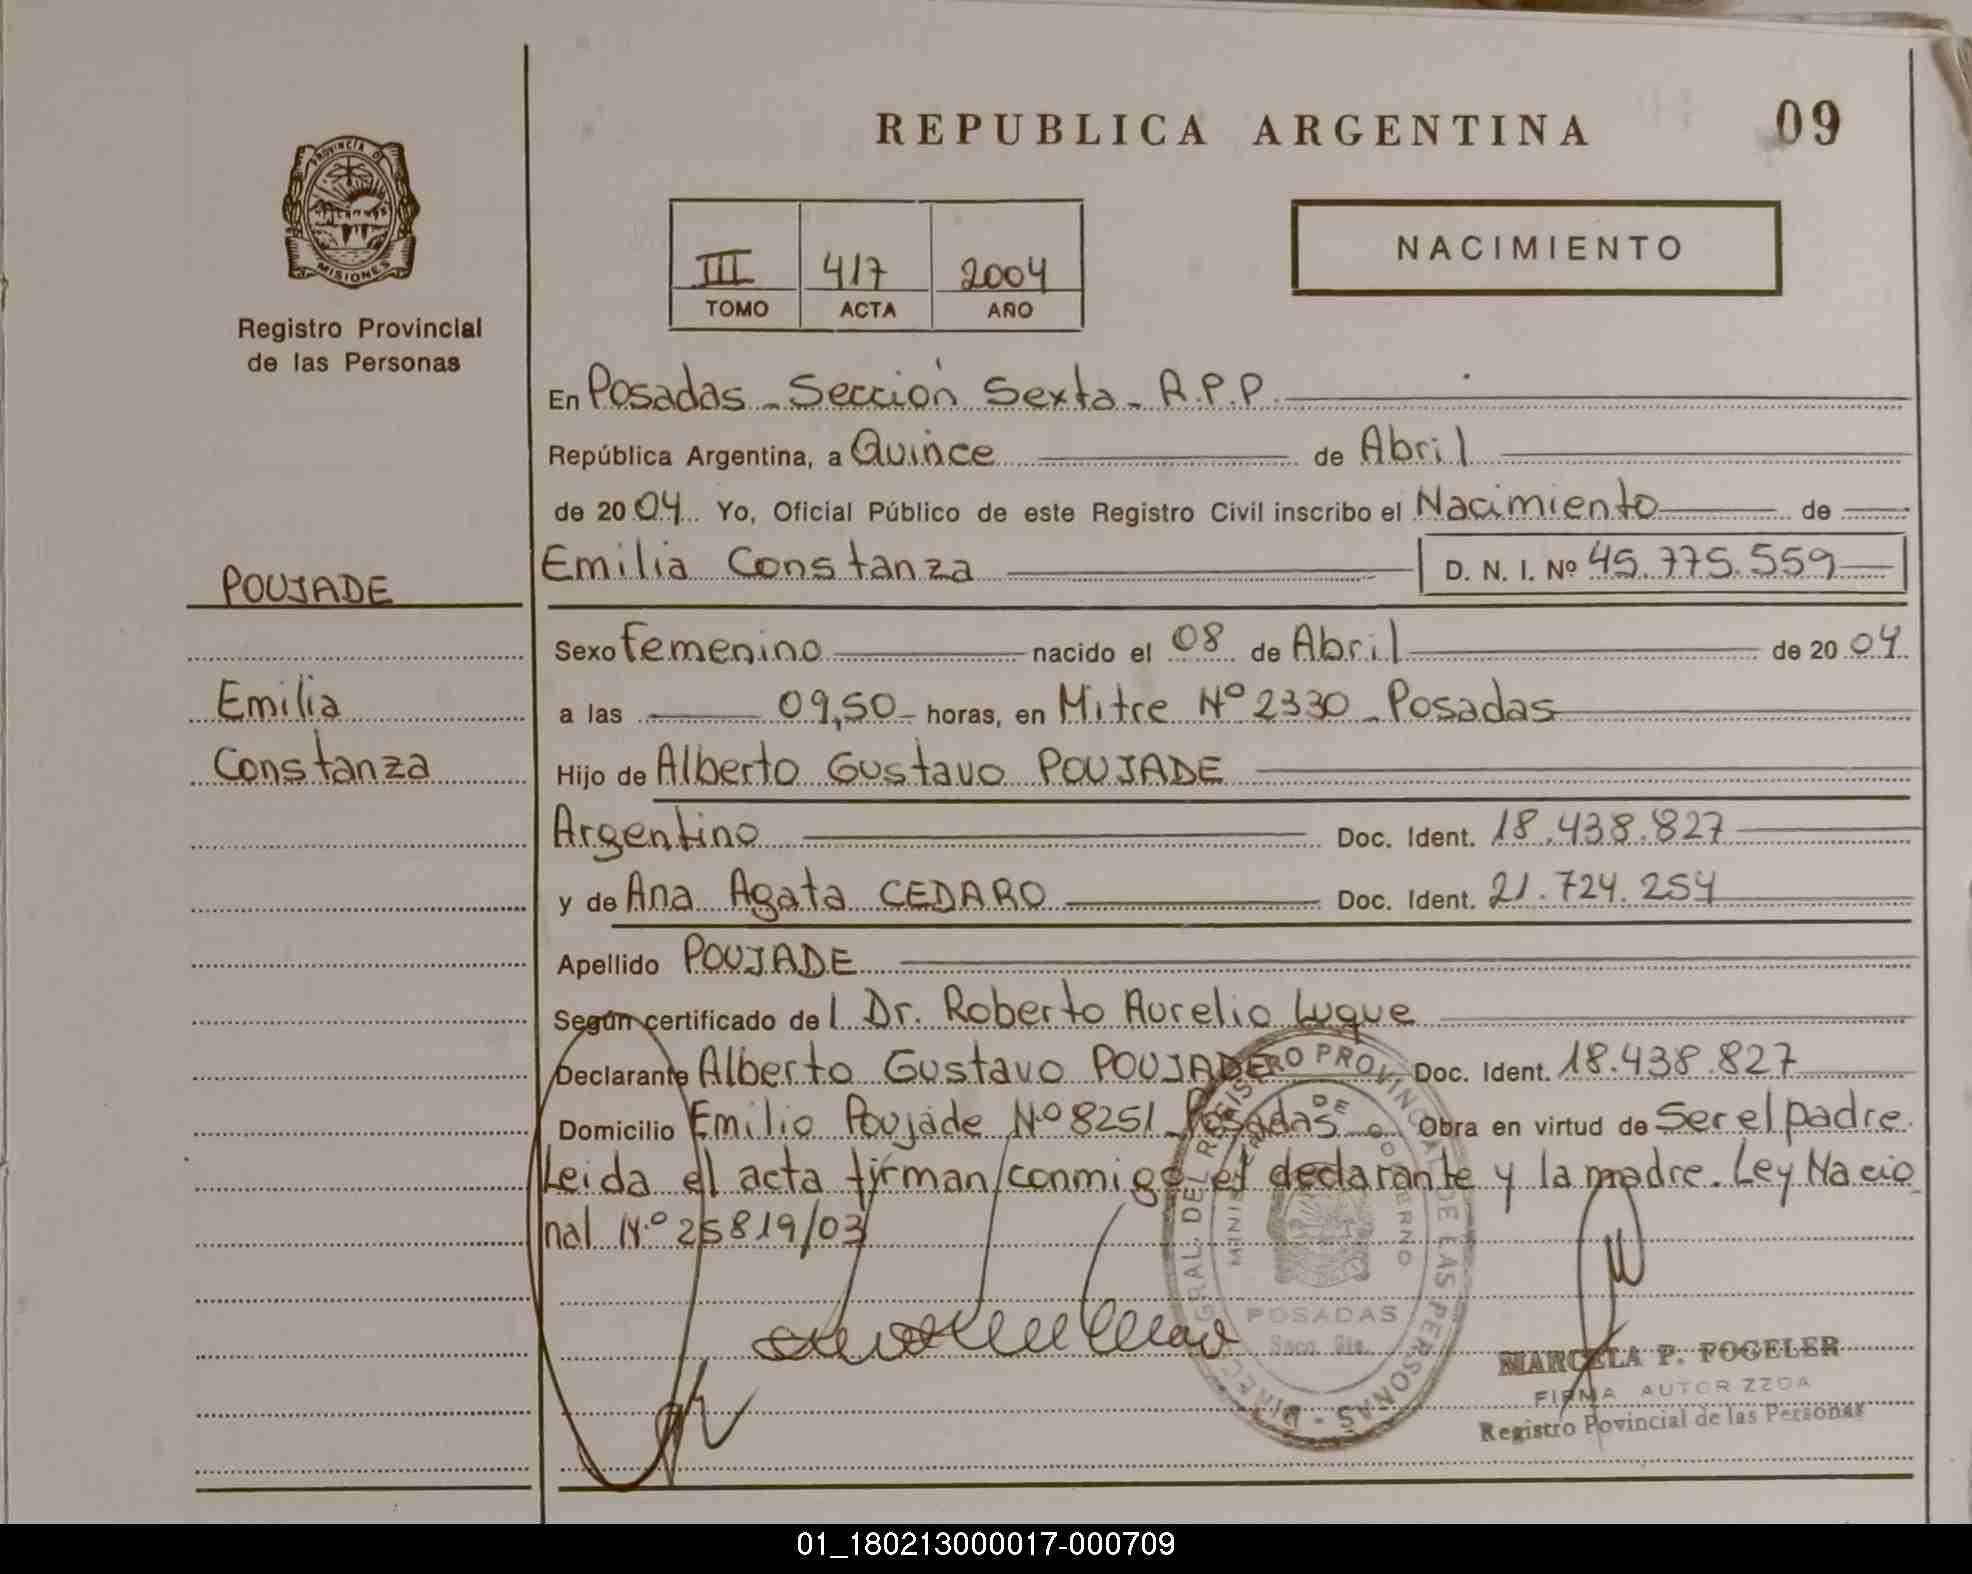 REPUBLICA ARGENTINA 09
PROVINCIA DE
MISIONES
Registro Provincial
de las Personas
III 417 2004
TOMO ACTA AÑO
NACIMIENTO
En Posadas - Sección Sexta - R.P.P.
República Argentina, a Quince de Abril
de 2004 Yo, Oficial Público de este Registro Civil inscribo el Nacimiento de
POUJADE
Emilia Constanza D. N. I. Nº 45.775.559
Sexo Femenino nacido el 08 de Abril de 2004
Emilia
a las 09,50 horas, en Mitre Nº 2330 - Posadas
Constanza
Hijo de Alberto Gustavo POUJADE
Argentino Doc. Ident. 18.438.827
y de Ana Agata CEDARO Doc. Ident. 21.724.254
Apellido POUJADE
Según certificado del Dr. Roberto Aurelio Luque
Declarante Alberto Gustavo POUJADE Doc. Ident. 18.438.827
Domicilio Emilio Poujade Nº 8251 - Posadas - Obra en virtud de Ser el padre.
Leida el acta firman conmigo el declarante y la madre. Ley Nacio
nal Nº 25819/03
DIREC. GRAL. DEL REGISTRO PROVINCIAL DE LAS PERSONAS
MINISTERIO DE GOBIERNO
POSADAS
Secc. 6ta.
MARCELA P. FOGELER
FIRMA AUTORIZZDA
Registro Povincial de las Personas
01_180213000017-000709